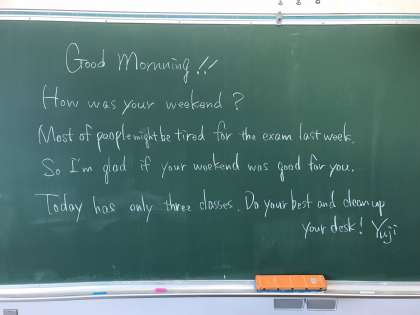 Good Mornning!!
How was your weekend?
Most of people might be tired for the exam last week.
So I'm glad if your weekend was good for you.
Today has only three classes. Do your best and clean up
your desk! Yuji